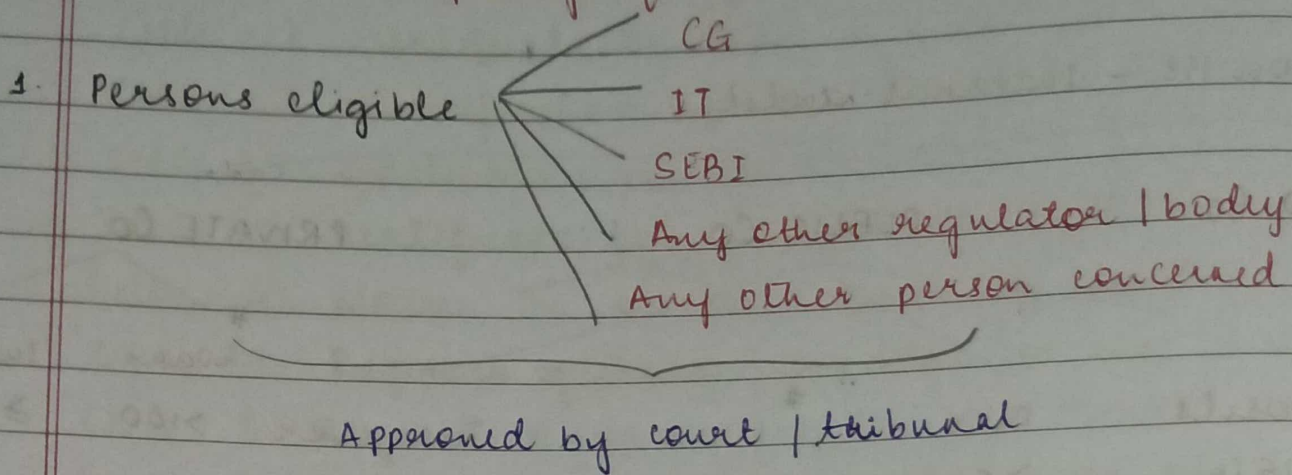 CG
1. Persons eligible
IT
SEBI
Any other regulator / body
Any other person concerned
Approved by court / tribunal